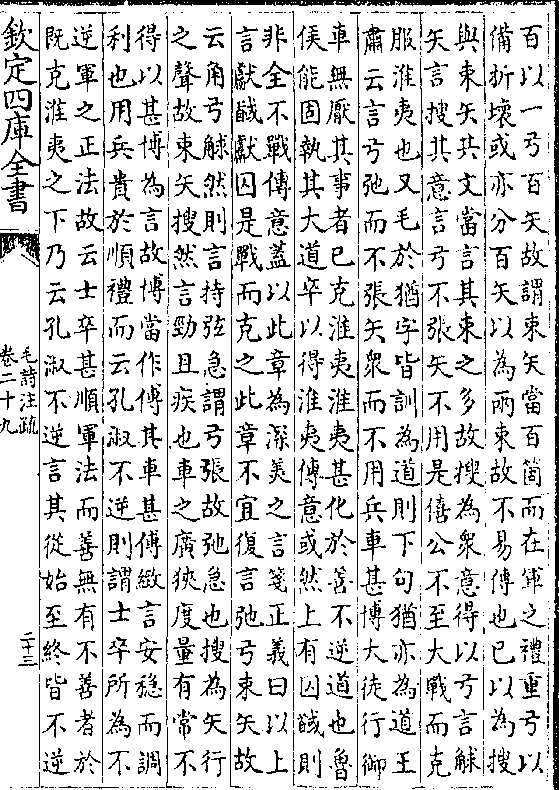 百以一弓百矢故謂束矢當百箇而在軍之禮重弓以
備折壞或亦分百矢以為兩束故不易傳也已以為搜
與束矢共文當言其束之多故搜為衆意得以弓言觩
矢言搜其意言弓不張矢不用是僖公不至大戰而克
服淮夷也又毛於猶字皆訓為道則下句猶亦為道王
肅云言弓弛而不張矢衆而不用兵車甚博大徒行御
車無厭其事者已克淮夷淮夷甚化於善不逆道也魯
侯能固執其大道卒以得淮夷傳意或然上有囚馘則
非全不戰傳意蓋以此章為深美之言箋正義曰以上
言獻馘獻囚是戰而克之此章不宜復言弛弓束矢故
云角弓觩然則言持弦急謂弓張故弛急也搜為矢行
之聲故束矢搜然言勁且疾也車之廣狹度量有常不
得以甚博為言故博當作傅其車甚傅緻言安穩而調
利也用兵貴於順禮而云孔淑不逆則謂士卒所為不
逆軍之正法故云士卒甚順軍法而善無有不善者於
既克淮夷之下乃云孔淑不逆言其從始至終皆不逆
欽定四庫全書
毛詩注疏
卷二十九
二十三